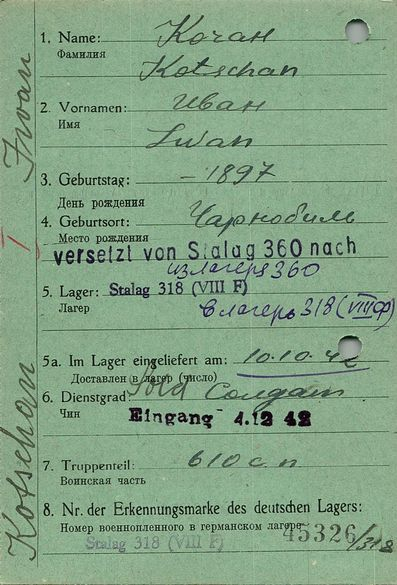 1. Name: Кочан
Фамилия
Kotschan
2. Vornamen: Иван
Имя
Iwan
3. Geburtstag: – 1897
День рождения
4. Geburtsort: Чарнобиль
Место рождения
versetzt von Stalag 360 nach
из лагеря 360
5. Lager: Stalag 318 (VIII F)
Лагер
в лагерь 318 (VIII ф)
5a. Im Lager eingeliefert am: 10.10.42
Доставлен в лагер (число)
6. Dienstgrad: Sold Солдат
Чин
Eingang 4.12 42
7. Truppenteil: 610 с.п
Воинская часть
8. Nr. der Erkennungsmarke des deutschen Lagers:
Номер военнопленного в германском лагере
45326/318
Stalag 318 (VIII F)
Kotschan Iwan